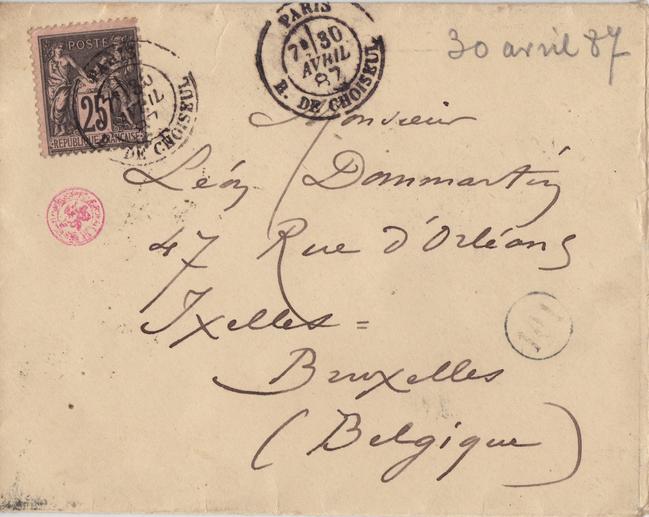 POSTE
25
REPUBLIQUE FRANÇAISE
PARIS
DE CHOISEUL
PARIS
7E 30
AVRIL
87
R. DE CHOISEUL
30 avril 87
Monsieur
Léon Dommartin
47 Rue d'Orléans
Ixelles =
Bruxelles
(Belgique)